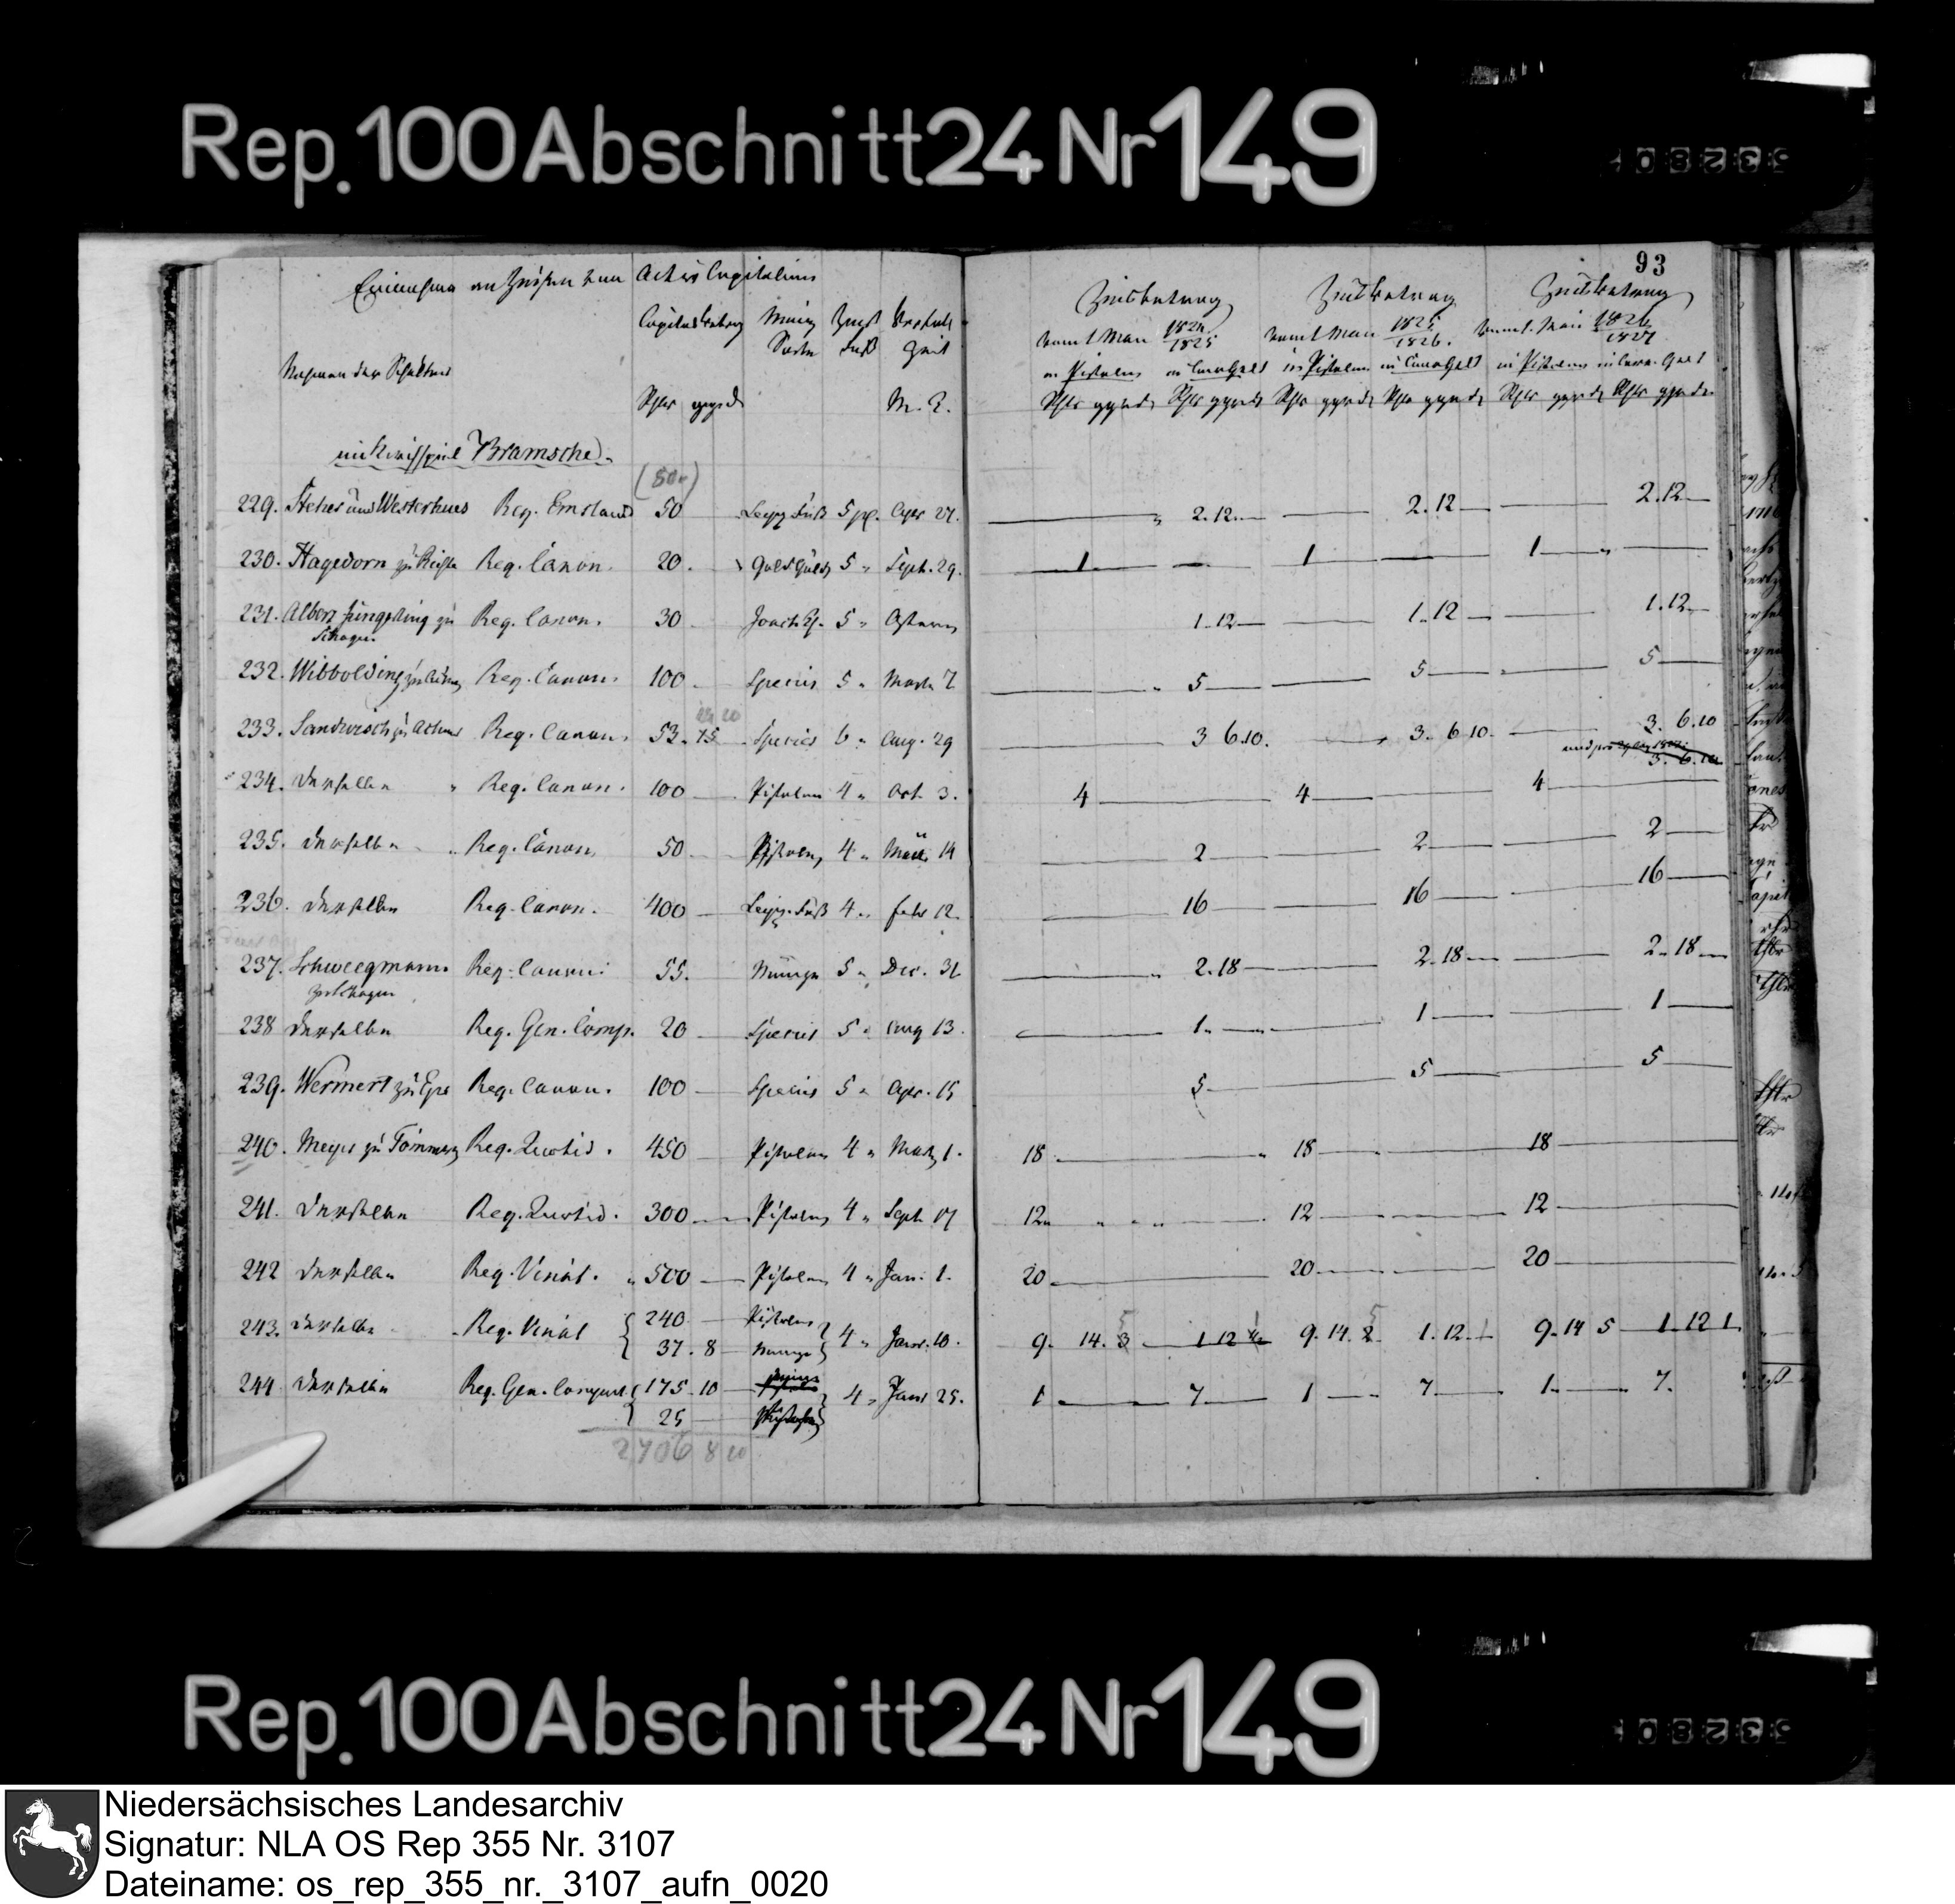 Rep. 100 Abschnitt 24 Nr 149
93
Einnahme an Zinsen von Activ Capitalien
Capitalbetrag Münz Sorte Zins Fuß Verfall Zeit
Namen der Schuldner
Rthlr ggr d M. T.
Zinsbetrag Zinsbetrag Zinsbetrag
vom 1 Mai 1824/1825 vom 1 Mai 1825/1826. vom 1. Mai 1826/1827
in Pistolen in Conv. Geld in Pistolen in Conv. Geld in Pistolen in Conv. Geld
Rthlr ggr d Rthlr ggr d Rthlr ggr d Rthlr ggr d Rthlr ggr d Rthlr ggr d
im Kirchspiel Bramsche.
(50)
229. und Westerhues Reg. Emsland 50 Leipz. Fuß 5 pC. Apr 27. 2.12 2.12 2.12
230. Hagedorn zu Reg. Canon. 20. Goldguld 5 " Sept. 29. 1 1 1
231. Albert zu Schagen Reg. Canon. 30 5 " Ostern 1.12 1.12 1.12
232. Wibbolding zu Reg. Canon. 100 Species 5 " 5 5 5
233. Sandwisch zu Achmer Reg. Canon. 53. 15 Species 6 " Aug. 29 3 6.10. 3. 6 10. 3. 6.10
234. derselbe " Reg. Canon. 100 Pistolen 4 " Oct. 3. 4 4 4
235. derselbe " Reg. Canon. 50 Pistolen 4 " März 14 2 2 2
236. derselbe Reg. Canon. 400 Leipz. Fuß 4 " Febr 12. 16 16 16
237. Schweegmann zu Schagen Reg. Canon. 55. Münze 5 " Dec. 31 2.18 2.18 2.18
238 derselbe Reg. Gen. Comp. 20 Species 5 " Aug 13. 1. 1 1
239. Wermert zu Epe Reg. Canon. 100 Species 5 " Apr. 15 5 5 5
240. Meyer zu Reg. Quotid. 450 Pistolen 4 " 1. 18 18 18
241. derselbe Reg. Quotid. 300 Pistolen 4 " Sept 17 12 12 12
242 derselbe Reg. Vinat. " 500 Pistolen 4 " Jan. 1. 20 20 20
243. derselbe Reg. Vinat { 240 Pistolen } 4 " Januar. 10. 9. 14. 3 1 12 9. 14. 2 1.12. 9. 14 5 1. 12 1
37. 8 Münze
244 derselbe Reg. Gen. { 175. 10 4 " Janr 25. 1 7 1 7 1. 7.
25
2706 8 10
Rep. 100 Abschnitt 24 Nr 149
Niedersächsisches Landesarchiv
Signatur: NLA OS Rep 355 Nr. 3107
Dateiname: os_rep_355_nr._3107_aufn_0020